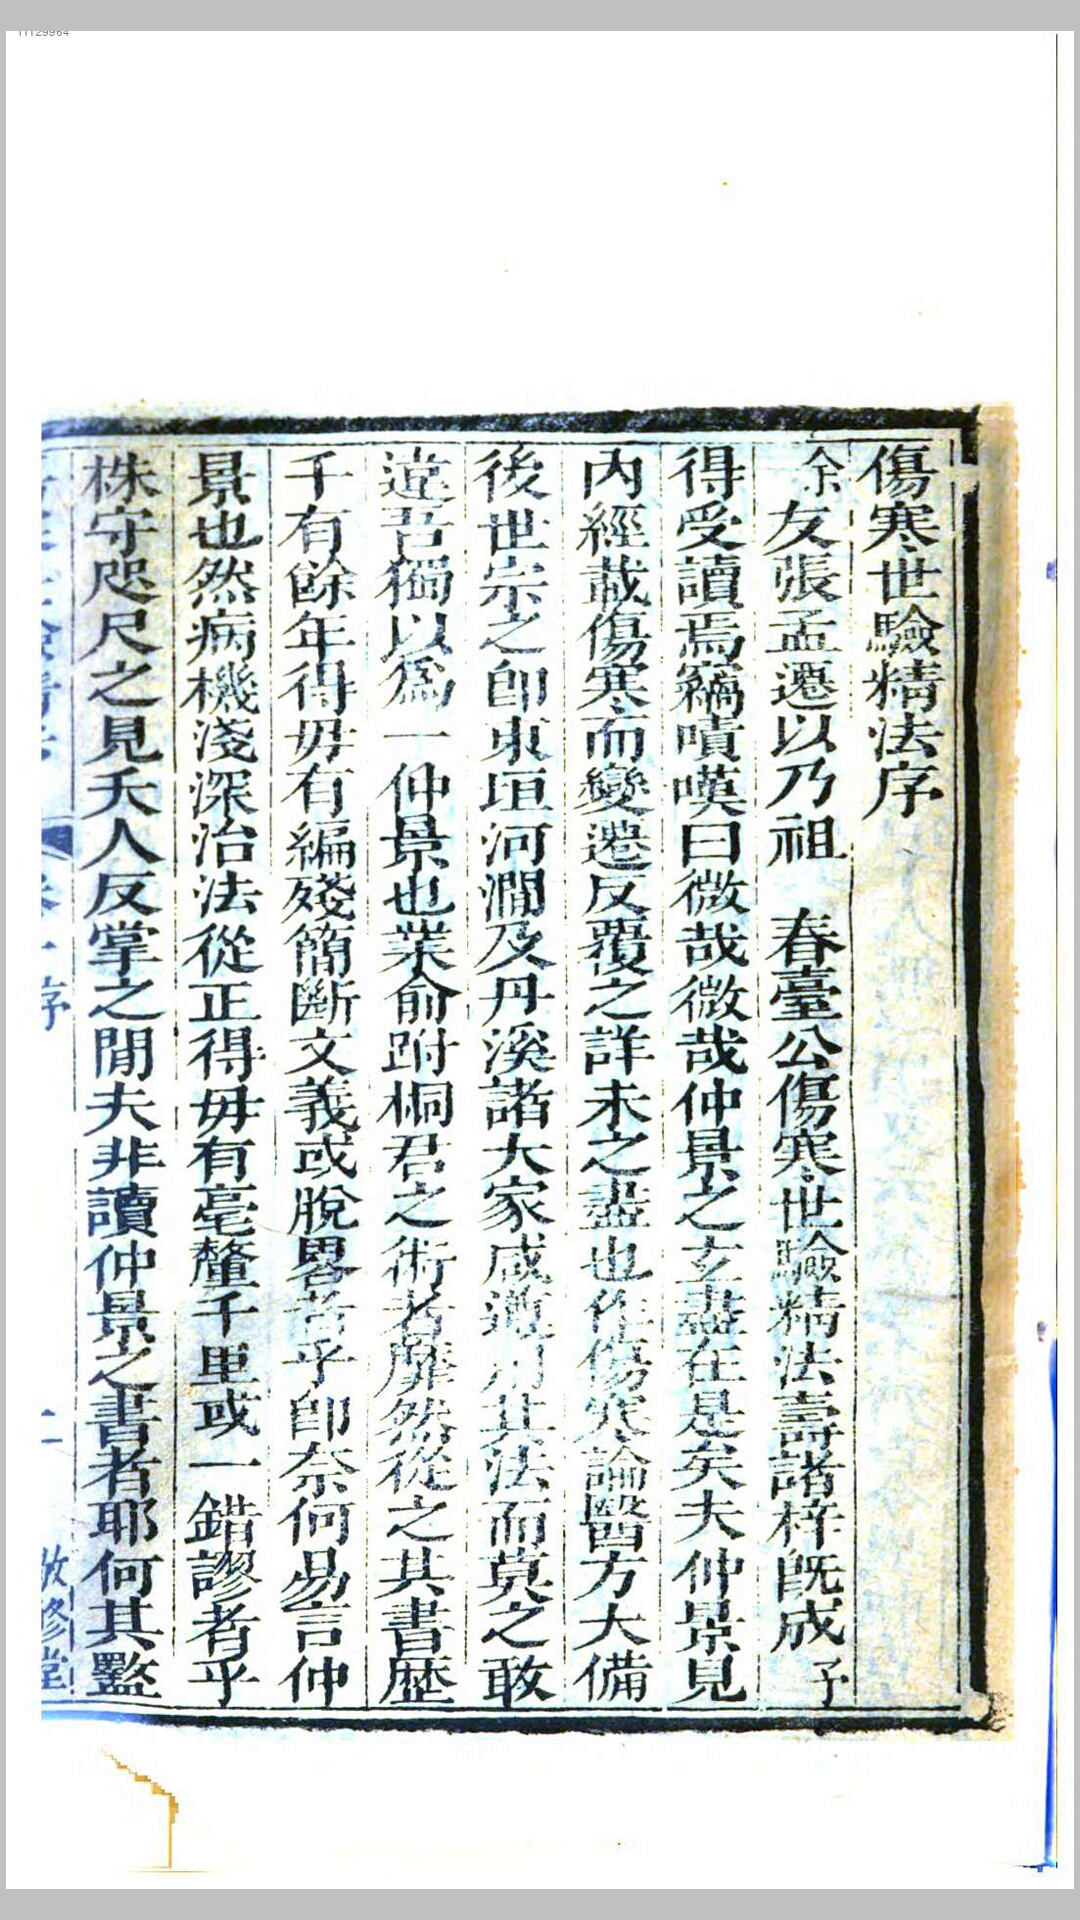 傷寒世驗精法序
余友張孟遷以乃祖 春臺公傷寒世驗精法壽諸梓旣成予
得受讀焉竊嘖嘆曰微哉微哉仲景之玄盡在是矣夫仲景見
內經載傷寒而變遷反覆之詳未之盡也作傷寒論醫方大備
後世宗之卽東垣河澗及丹溪諸大家咸遵用其法而莫之敢
違吾獨以爲一仲景也業俞跗桐君之術者靡然從之其書歷
千有餘年得毋有編殘簡斷文義或脫畧者乎卽奈何易言仲
景也然病機淺深治法從正得毋有毫釐千里或一錯謬者乎
株守咫尺之見夭人反掌之間夫非讀仲景之書者耶何其盭
序
敬修堂